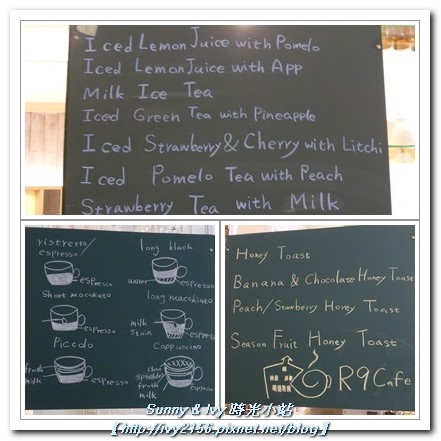 Iced Lemon Juice with Pomelo
Iced Lemon Juice with App
Milk Ice Tea
Iced Green Tea with Pineapple
Iced Strawberry & Cherry with Litchi
Iced Pomelo Tea with Peach
Strawberry Tea with Milk
ristretto/
espresso
espresso
long black
water
espresso
Short macchiato
espresso
long macchiato
milk
stain
espresso
Piccolo
froth
milk
espresso
Cappuccino
choc
sprinkles
froth
milk
espresso
Honey Toast
Banana & Chocolate Honey Toast
Peach/Strawberry Honey Toast
Season Fruit Honey Toast
R9 Cafe
Sunny & Ivy 時光小站
【http://ivy2456.pixnet.net/blog】